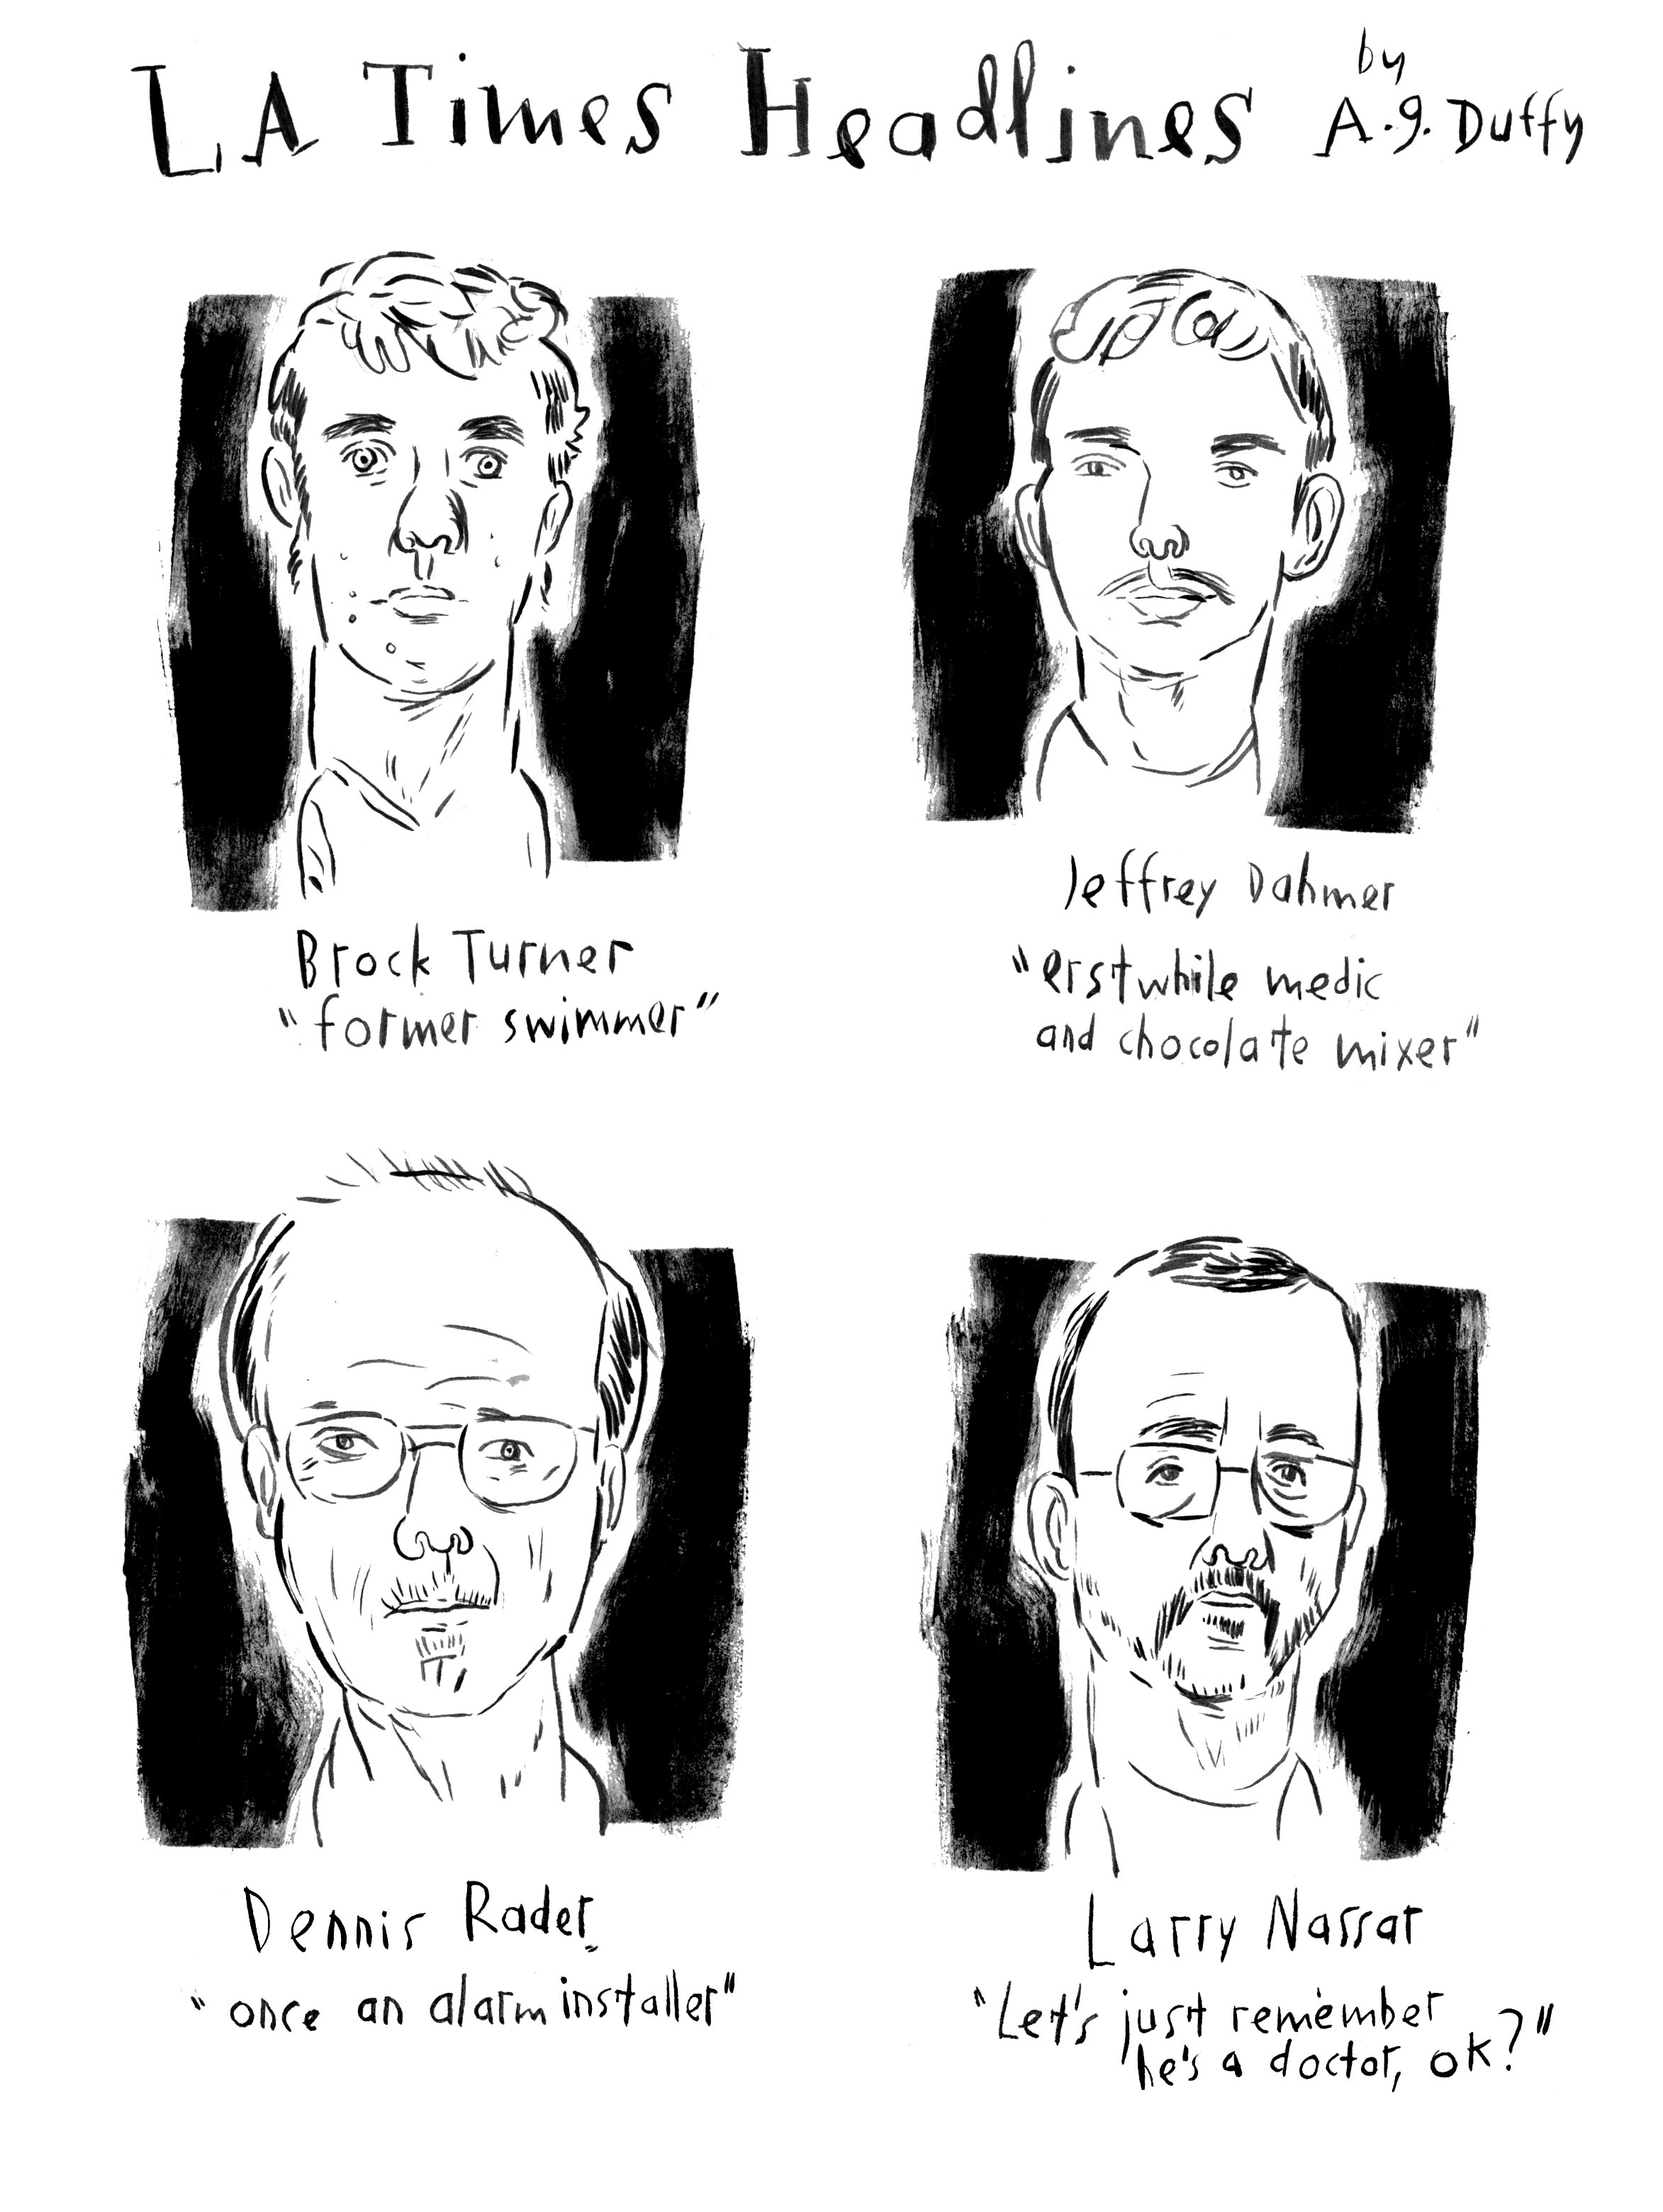 LA Times Headlines by A.G. Duffy
Brock Turner
"former swimmer"
Jeffrey Dahmer
"erstwhile medic
and chocolate mixer"
Dennis Rader
"once an alarm installer"
Larry Nassar
"Let's just remember
he's a doctor, ok?"